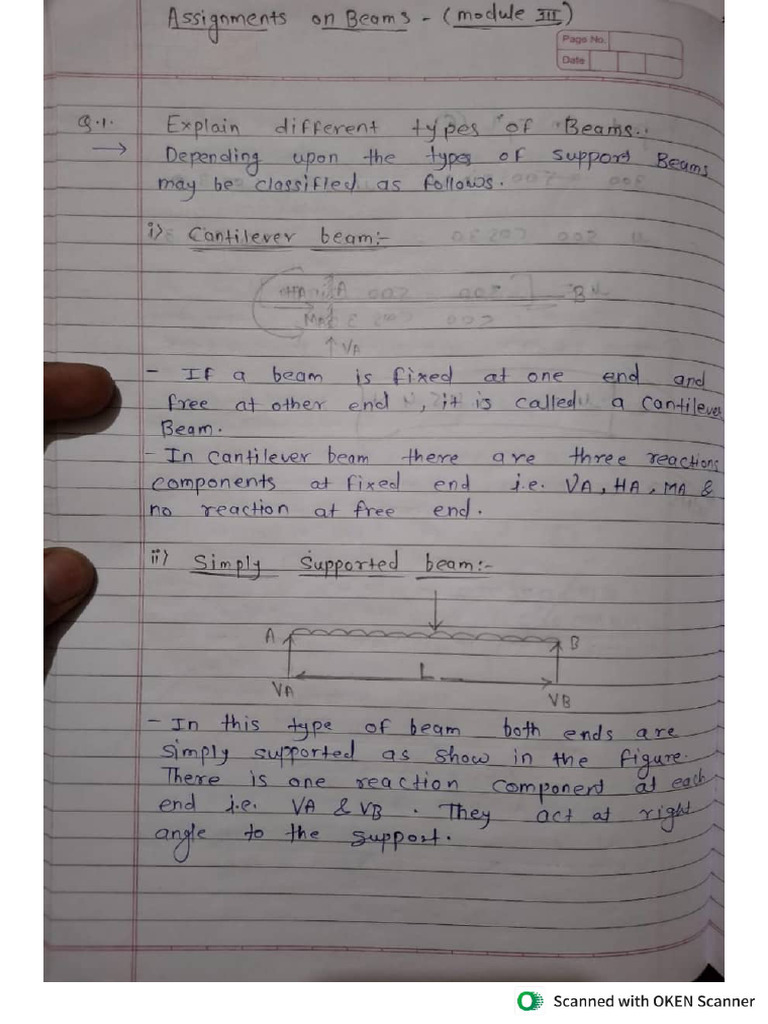 Assignments on Beams - (module III)
Page No.
Date
Q.1. Explain different types of Beams.
→ Depending upon the types of support Beams
may be classified as follows.
i) Cantilever beam:-
HA A B
MA
↑ VA
- If a beam is fixed at one end and
free at other end, it is called a cantilever
Beam.
- In cantilever beam there are three reactions
components at fixed end i.e. VA, HA, MA &
no reaction at free end.
ii) Simply Supported beam:-
A B
L
VA VB
- In this type of beam both ends are
simply supported as show in the figure.
There is one reaction component at each
end i.e. VA & VB. They act at right
angle to the support.
Scanned with OKEN Scanner